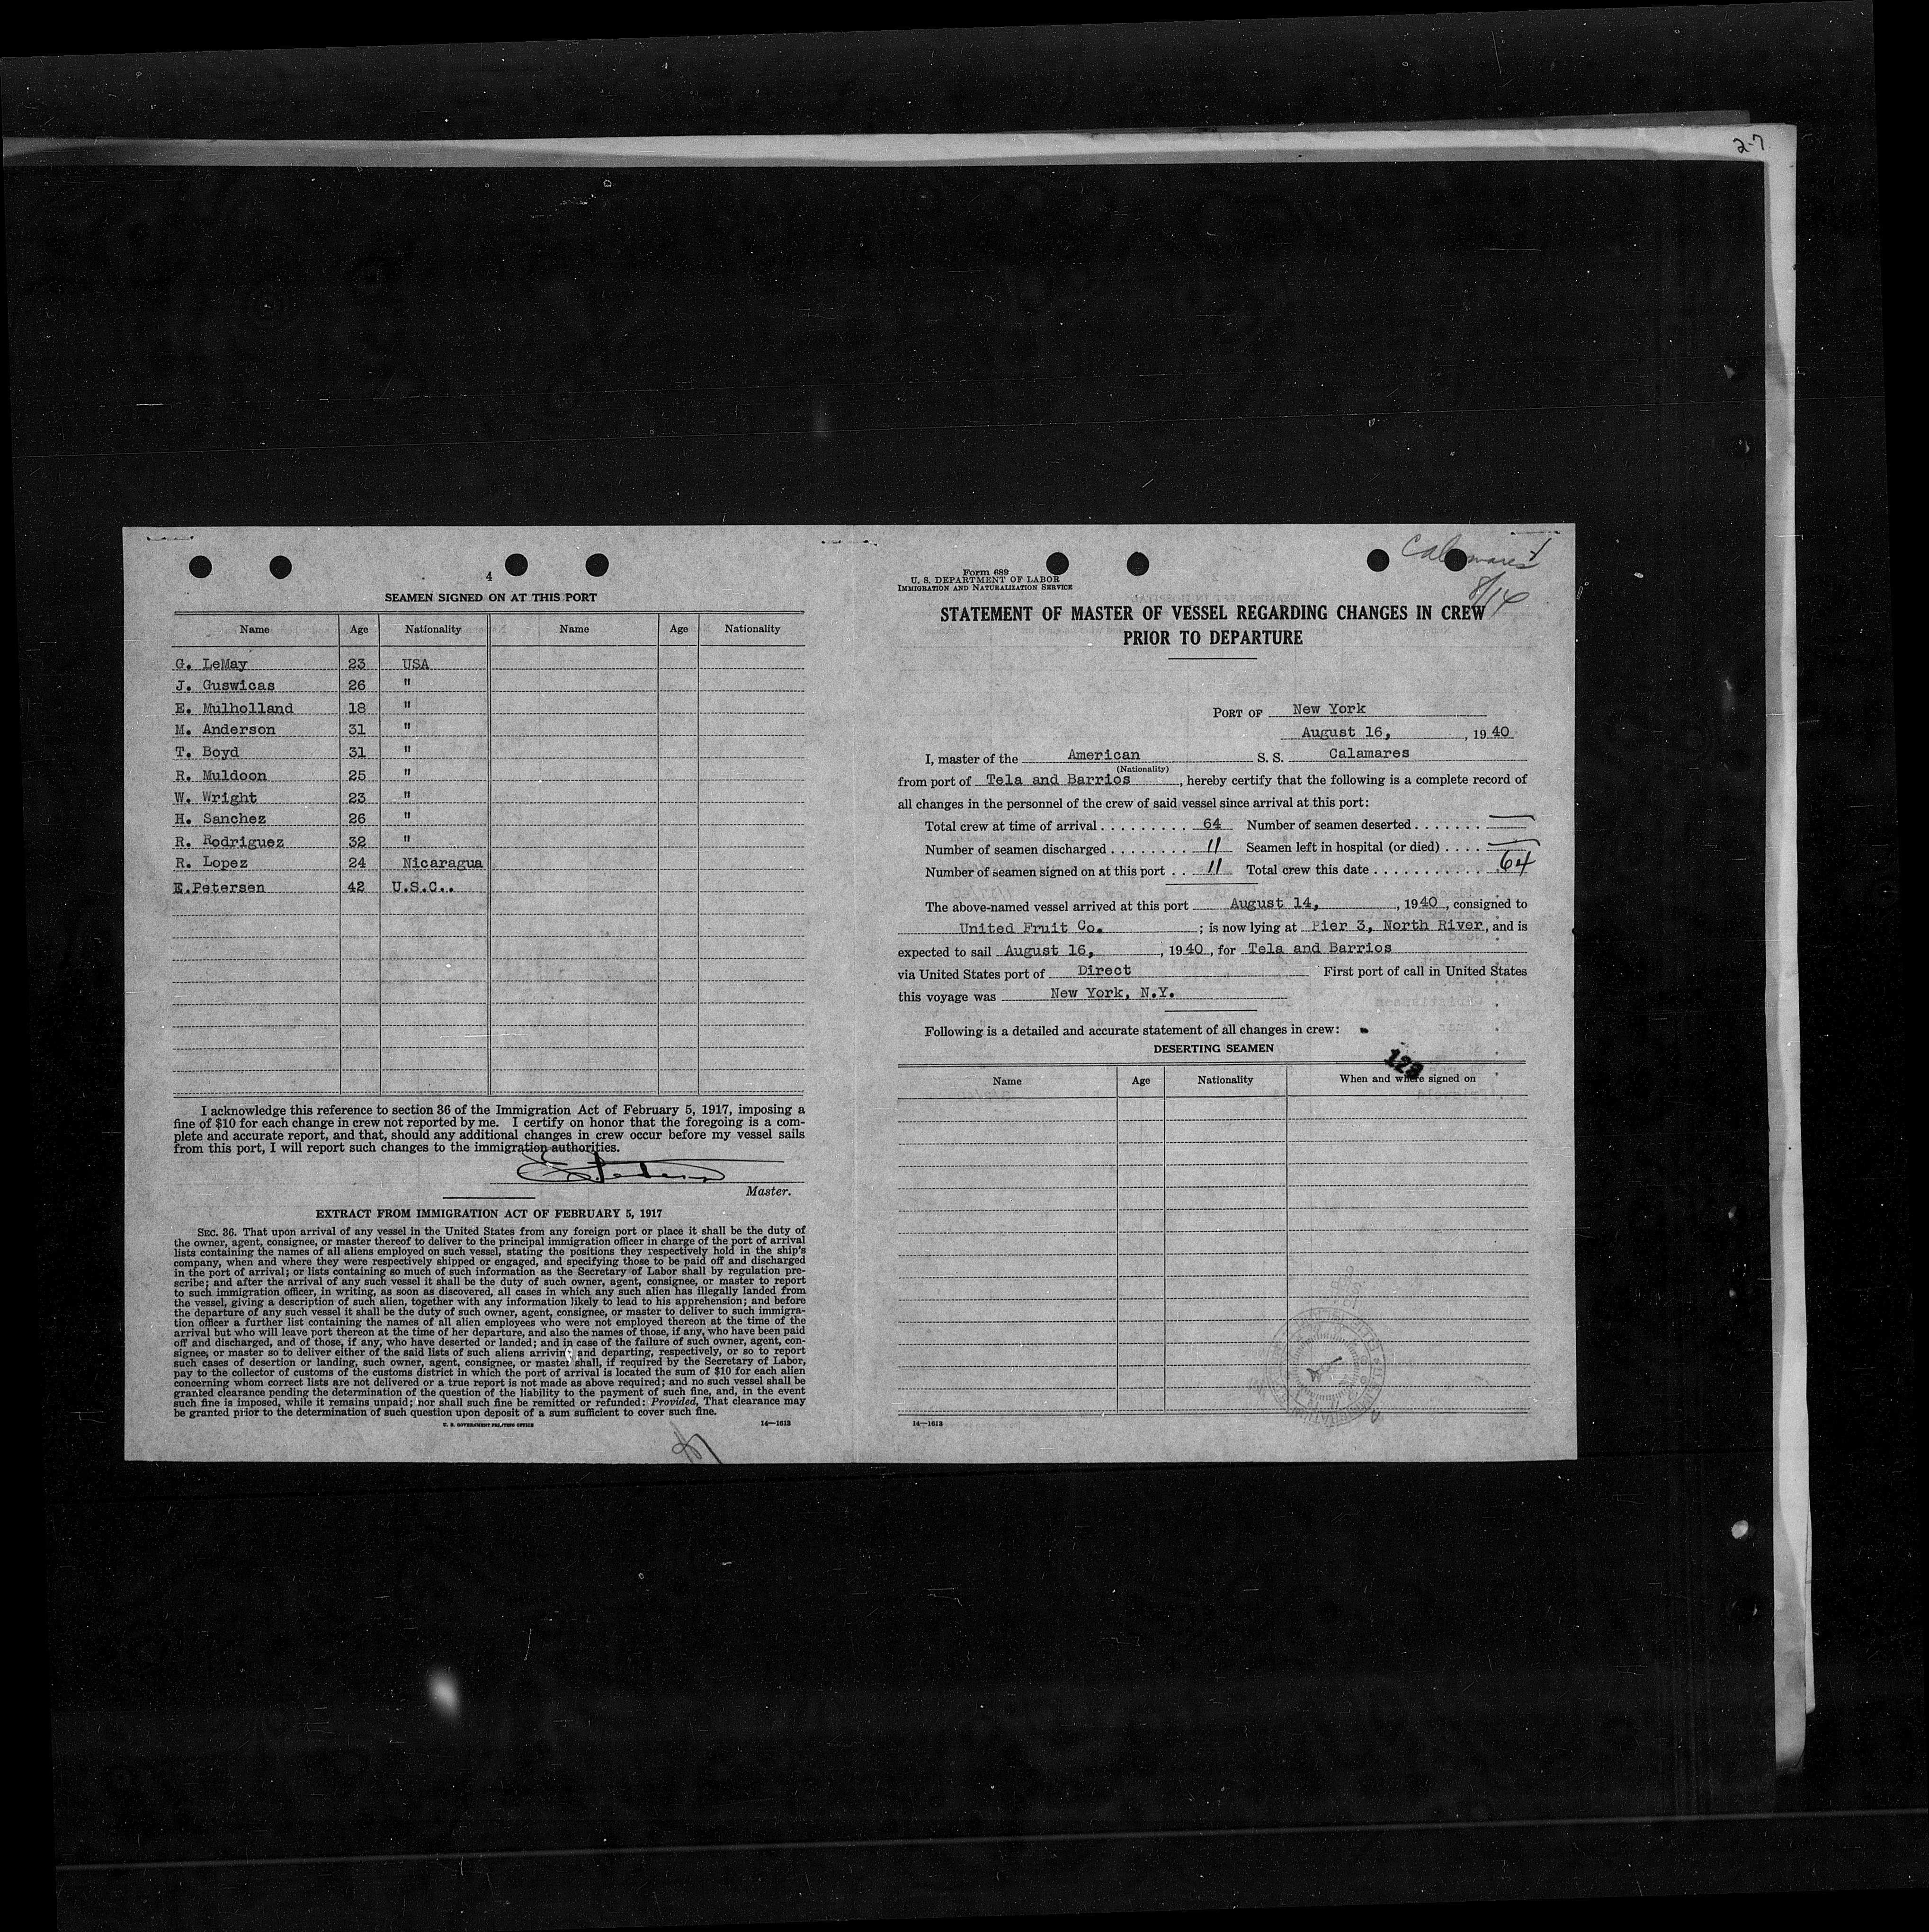 2-7
4
SEAMEN SIGNED ON AT THIS PORT
Name Age Nationality Name Age Nationality
G. LeMay 23 USA
J. Guswicas 26 "
E. Mulholland 18 "
M. Anderson 31 "
T. Boyd 31 "
R. Muldoon 25 "
W. Wright 23 "
H. Sanchez 26 "
R. Rodriguez 32 "
R. Lopez 24 Nicaragua
E.Petersen 42 U.S.C..
I acknowledge this reference to section 36 of the Immigration Act of February 5, 1917, imposing a
fine of $10 for each change in crew not reported by me. I certify on honor that the foregoing is a com-
plete and accurate report, and that, should any additional changes in crew occur before my vessel sails
from this port, I will report such changes to the immigration authorities.
Master.
EXTRACT FROM IMMIGRATION ACT OF FEBRUARY 5, 1917
SEC. 36. That upon arrival of any vessel in the United States from any foreign port or place it shall be the duty of
the owner, agent, consignee, or master thereof to deliver to the principal immigration officer in charge of the port of arrival
lists containing the names of all aliens employed on such vessel, stating the positions they respectively hold in the ship's
company, when and where they were respectively shipped or engaged, and specifying those to be paid off and discharged
in the port of arrival; or lists containing so much of such information as the Secretary of Labor shall by regulation pre-
scribe; and after the arrival of any such vessel it shall be the duty of such owner, agent, consignee, or master to report
to such immigration officer, in writing, as soon as discovered, all cases in which any such alien has illegally landed from
the vessel, giving a description of such alien, together with any information likely to lead to his apprehension; and before
the departure of any such vessel it shall be the duty of such owner, agent, consignee, or master to deliver to such immigra-
tion officer a further list containing the names of all alien employees who were not employed thereon at the time of the
arrival but who will leave port thereon at the time of her departure, and also the names of those, if any, who have been paid
off and discharged, and of those, if any, who have deserted or landed; and in case of the failure of such owner, agent, con-
signee, or master so to deliver either of the said lists of such aliens arriving and departing, respectively, or so to report
such cases of desertion or landing, such owner, agent, consignee, or master shall, if required by the Secretary of Labor,
pay to the collector of customs of the customs district in which the port of arrival is located the sum of $10 for each alien
concerning whom correct lists are not delivered or a true report is not made as above required; and no such vessel shall be
granted clearance pending the determination of the question of the liability to the payment of such fine, and, in the event
such fine is imposed, while it remains unpaid; nor shall such fine be remitted or refunded: Provided, That clearance may
be granted prior to the determination of such question upon deposit of a sum sufficient to cover such fine.
U. S. GOVERNMENT PRINTING OFFICE 14—1613
Calamares
8/14
Form 689
U. S. DEPARTMENT OF LABOR
IMMIGRATION AND NATURALIZATION SERVICE
STATEMENT OF MASTER OF VESSEL REGARDING CHANGES IN CREW
PRIOR TO DEPARTURE
PORT OF New York
August 16, , 1940
I, master of the American S. S. Calamares
(Nationality)
from port of Tela and Barrios , hereby certify that the following is a complete record of
all changes in the personnel of the crew of said vessel since arrival at this port:
Total crew at time of arrival . . . . . . . . . 64 Number of seamen deserted . . . . . . . —
Number of seamen discharged . . . . . . . . 11 Seamen left in hospital (or died) . . . . —
Number of seamen signed on at this port . . 11 Total crew this date . . . . . . . . . . . . 64
The above-named vessel arrived at this port August 14, , 1940 , consigned to
United Fruit Co. ; is now lying at Pier 3, North River, and is
expected to sail August 16, , 1940 , for Tela and Barrios
via United States port of Direct First port of call in United States
this voyage was New York, N.Y.
Following is a detailed and accurate statement of all changes in crew:
DESERTING SEAMEN
123
Name Age Nationality When and where signed on
14—1613